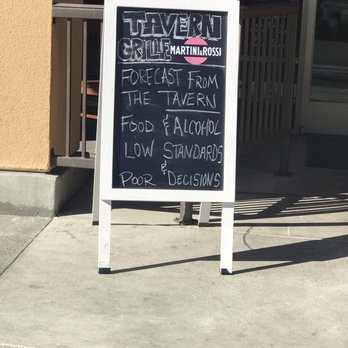 TAVERN
GRILLE MARTINI & ROSSI
FORECAST FROM
THE TAVERN
FOOD & ALCOHOL
LOW STANDARDS
&
POOR DECISIONS